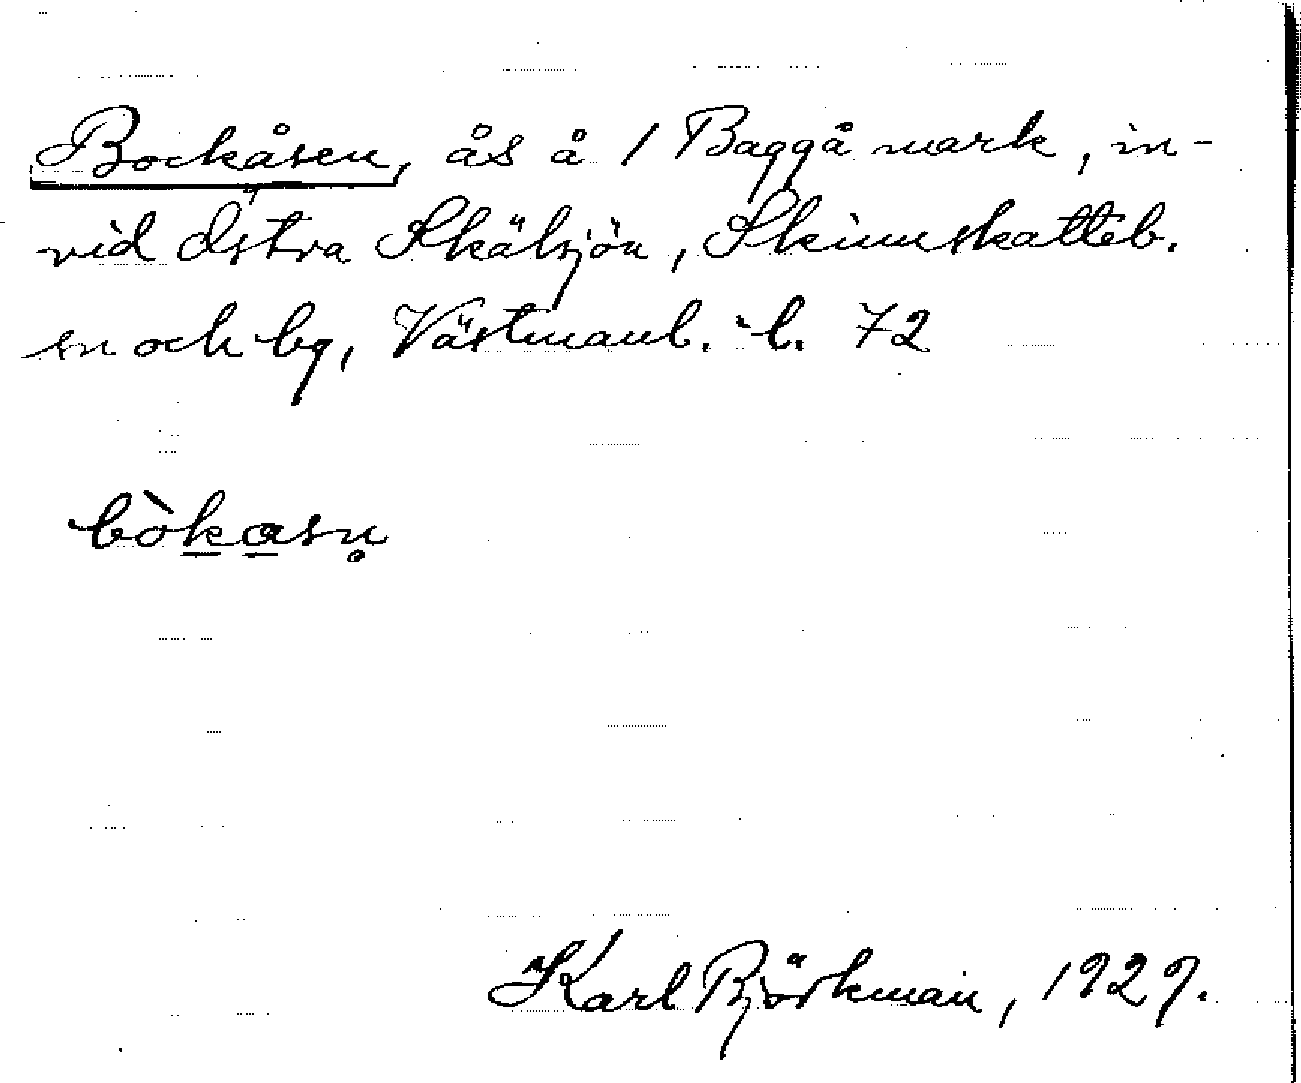 Bockåsen, ås å 1 Baggå mark, in-
vid Östra Skälsjön, Skinnskatteb.
sn och bg, Västmanl. l. 72
bòkasn̥
Karl Björkman, 1929.